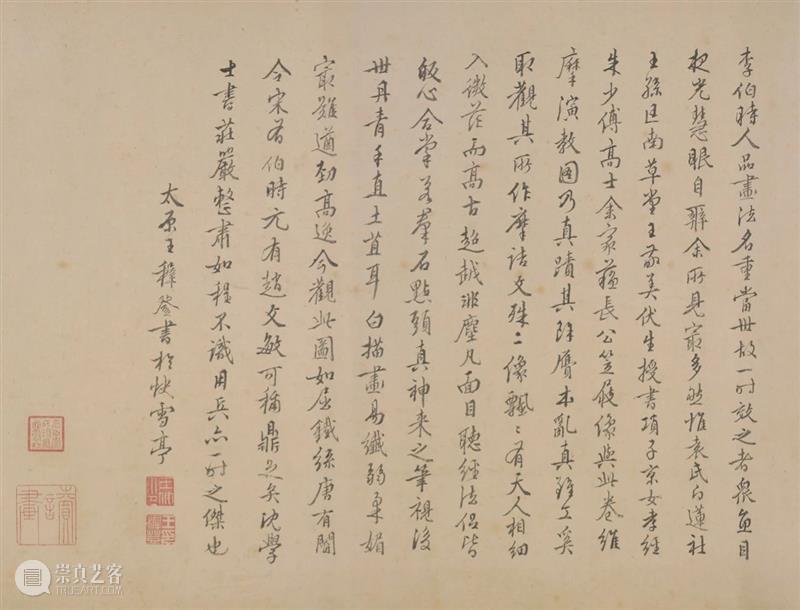 李伯時人品畫法名重當世故一時效之者眾魚目
夜光慧眼自辨余所見最多然惟袁氏白蓮社
王孫匡南草堂王敬美伏生授書項子京女孝經
朱少傅高士余家藏長公笠屐像與此卷維
摩演教圖乃真蹟其餘贗本亂真雖工奚
取觀其所作摩詰文殊二像飄〻有天人相細
入微茫而高古超越非塵凡面目聽經法侶皆
皈心合掌若羣石點頭真神來之筆視後
世丹青手直土苴耳白描畫易纖弱柔媚
最難遒勁高逸今觀此圖如屈鐵絲唐有閻
令宋有伯時元有趙文敏可稱鼎足矣沈學
士書莊嚴整肅如程不識用兵亦一時之傑也
太原王穉登書於快雪亭
崇真艺客